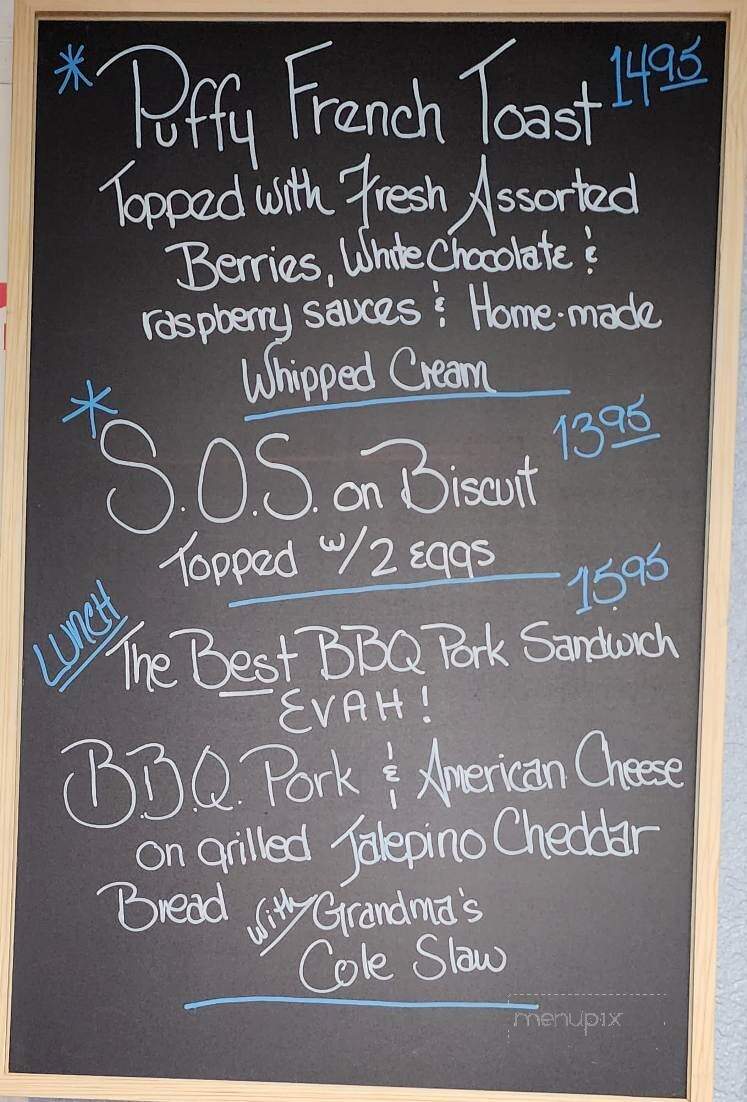 * Puffy French Toast 14 95
Topped with Fresh Assorted
Berries, White Chocolate &
raspberry sauces & Home-made
Whipped Cream
* S.O.S. on Biscuit 13 95
Topped w/ 2 eggs
LUNCH 15.95
The Best BBQ Pork Sandwich
EVAH!
B.B.Q. Pork & American Cheese
on grilled Jalepino Cheddar
Bread with Grandma's
Cole Slaw
menupix